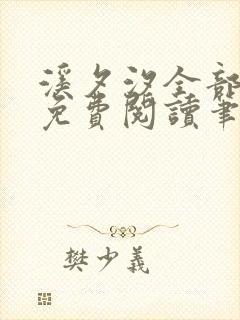 溪夕汐全部
免費閱讀筆
樊少義